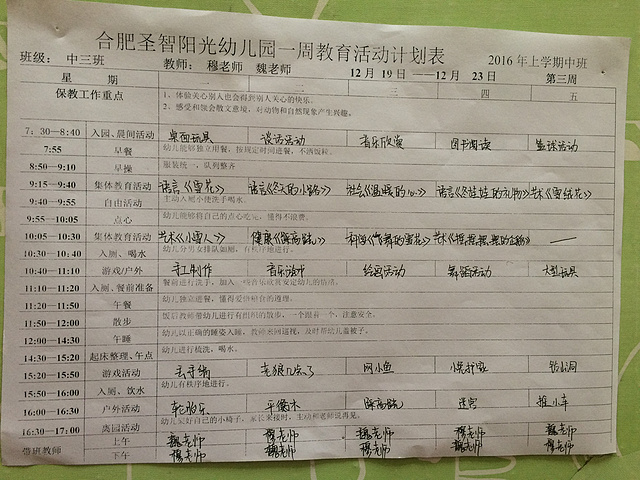 合肥圣智阳光幼儿园一周教育活动计划表
班级: 中三班 教师: 穆老师 魏老师 12月 19日 ——12月 23日 2016年上学期中班 第三周
星 期 一 二 三 四 五
保教工作重点 1、体验关心别人也会得到别人关心的快乐。
2、感受和领会散文意境,对动物和自然现象产生兴趣。
7:30—8:40 入园、晨间活动 桌面玩具 谈话活动 音乐欣赏 图书阅读 篮球活动
7:55 早餐 幼儿能够独立用餐,按规定时间进餐,不洒饭粒。
8:50—9:10 早操 服装统一,队列整齐
9:15—9:40 集体教育活动 语言《雪花》 语言《冬天的小路》 社会《温暖的心》 语言《冬娃娃的礼物》 艺术《雪绒花》
9:40—9:55 自由活动 主动入厕小便洗手喝水。
9:55—10:05 点心 幼儿能够将自己的点心吃完,懂得不浪费。
10:05—10:30 集体教育活动 艺术《小雪人》 健康 科学《飞舞的雪花》 艺术 —
10:30—10:40 入厕、喝水 幼儿分男女排队如厕,有秩序地进行。
10:40—11:10 游戏/户外 手工制作 音乐游戏 绘画活动 舞蹈活动 大型玩具
11:10—11:20 入厕、餐前准备 餐前进行洗手,加入一些音乐欣赏安定幼儿的情绪。
11:20—11:50 午餐 幼儿独立进餐,懂得爱惜粮食的道理。
11:50—12:00 散步 饭后教师带幼儿进行有组织的散步,一个跟着一个,注意安全。
12:00—14:30 午睡 幼儿以正确的睡姿入睡,教师来回巡视,及时帮幼儿盖被子。
14:30—15:20 起床整理、午点 幼儿进行梳洗,喝水。
15:20—15:50 游戏活动 丢手绢 老狼几点了 网小鱼 钻山洞
15:50—16:00 入厕、饮水 幼儿有秩序地进行。
16:00—16:30 户外活动 轮胎乐 平衡木 迷宫 推小车
16:30—17:00 离园活动 幼儿坐好自己的小椅子,家长来接时,主动和老师说再见。
带班教师 上午 魏老师 穆老师 魏老师 魏老师 魏老师
下午 穆老师 魏老师 穆老师 穆老师 穆老师